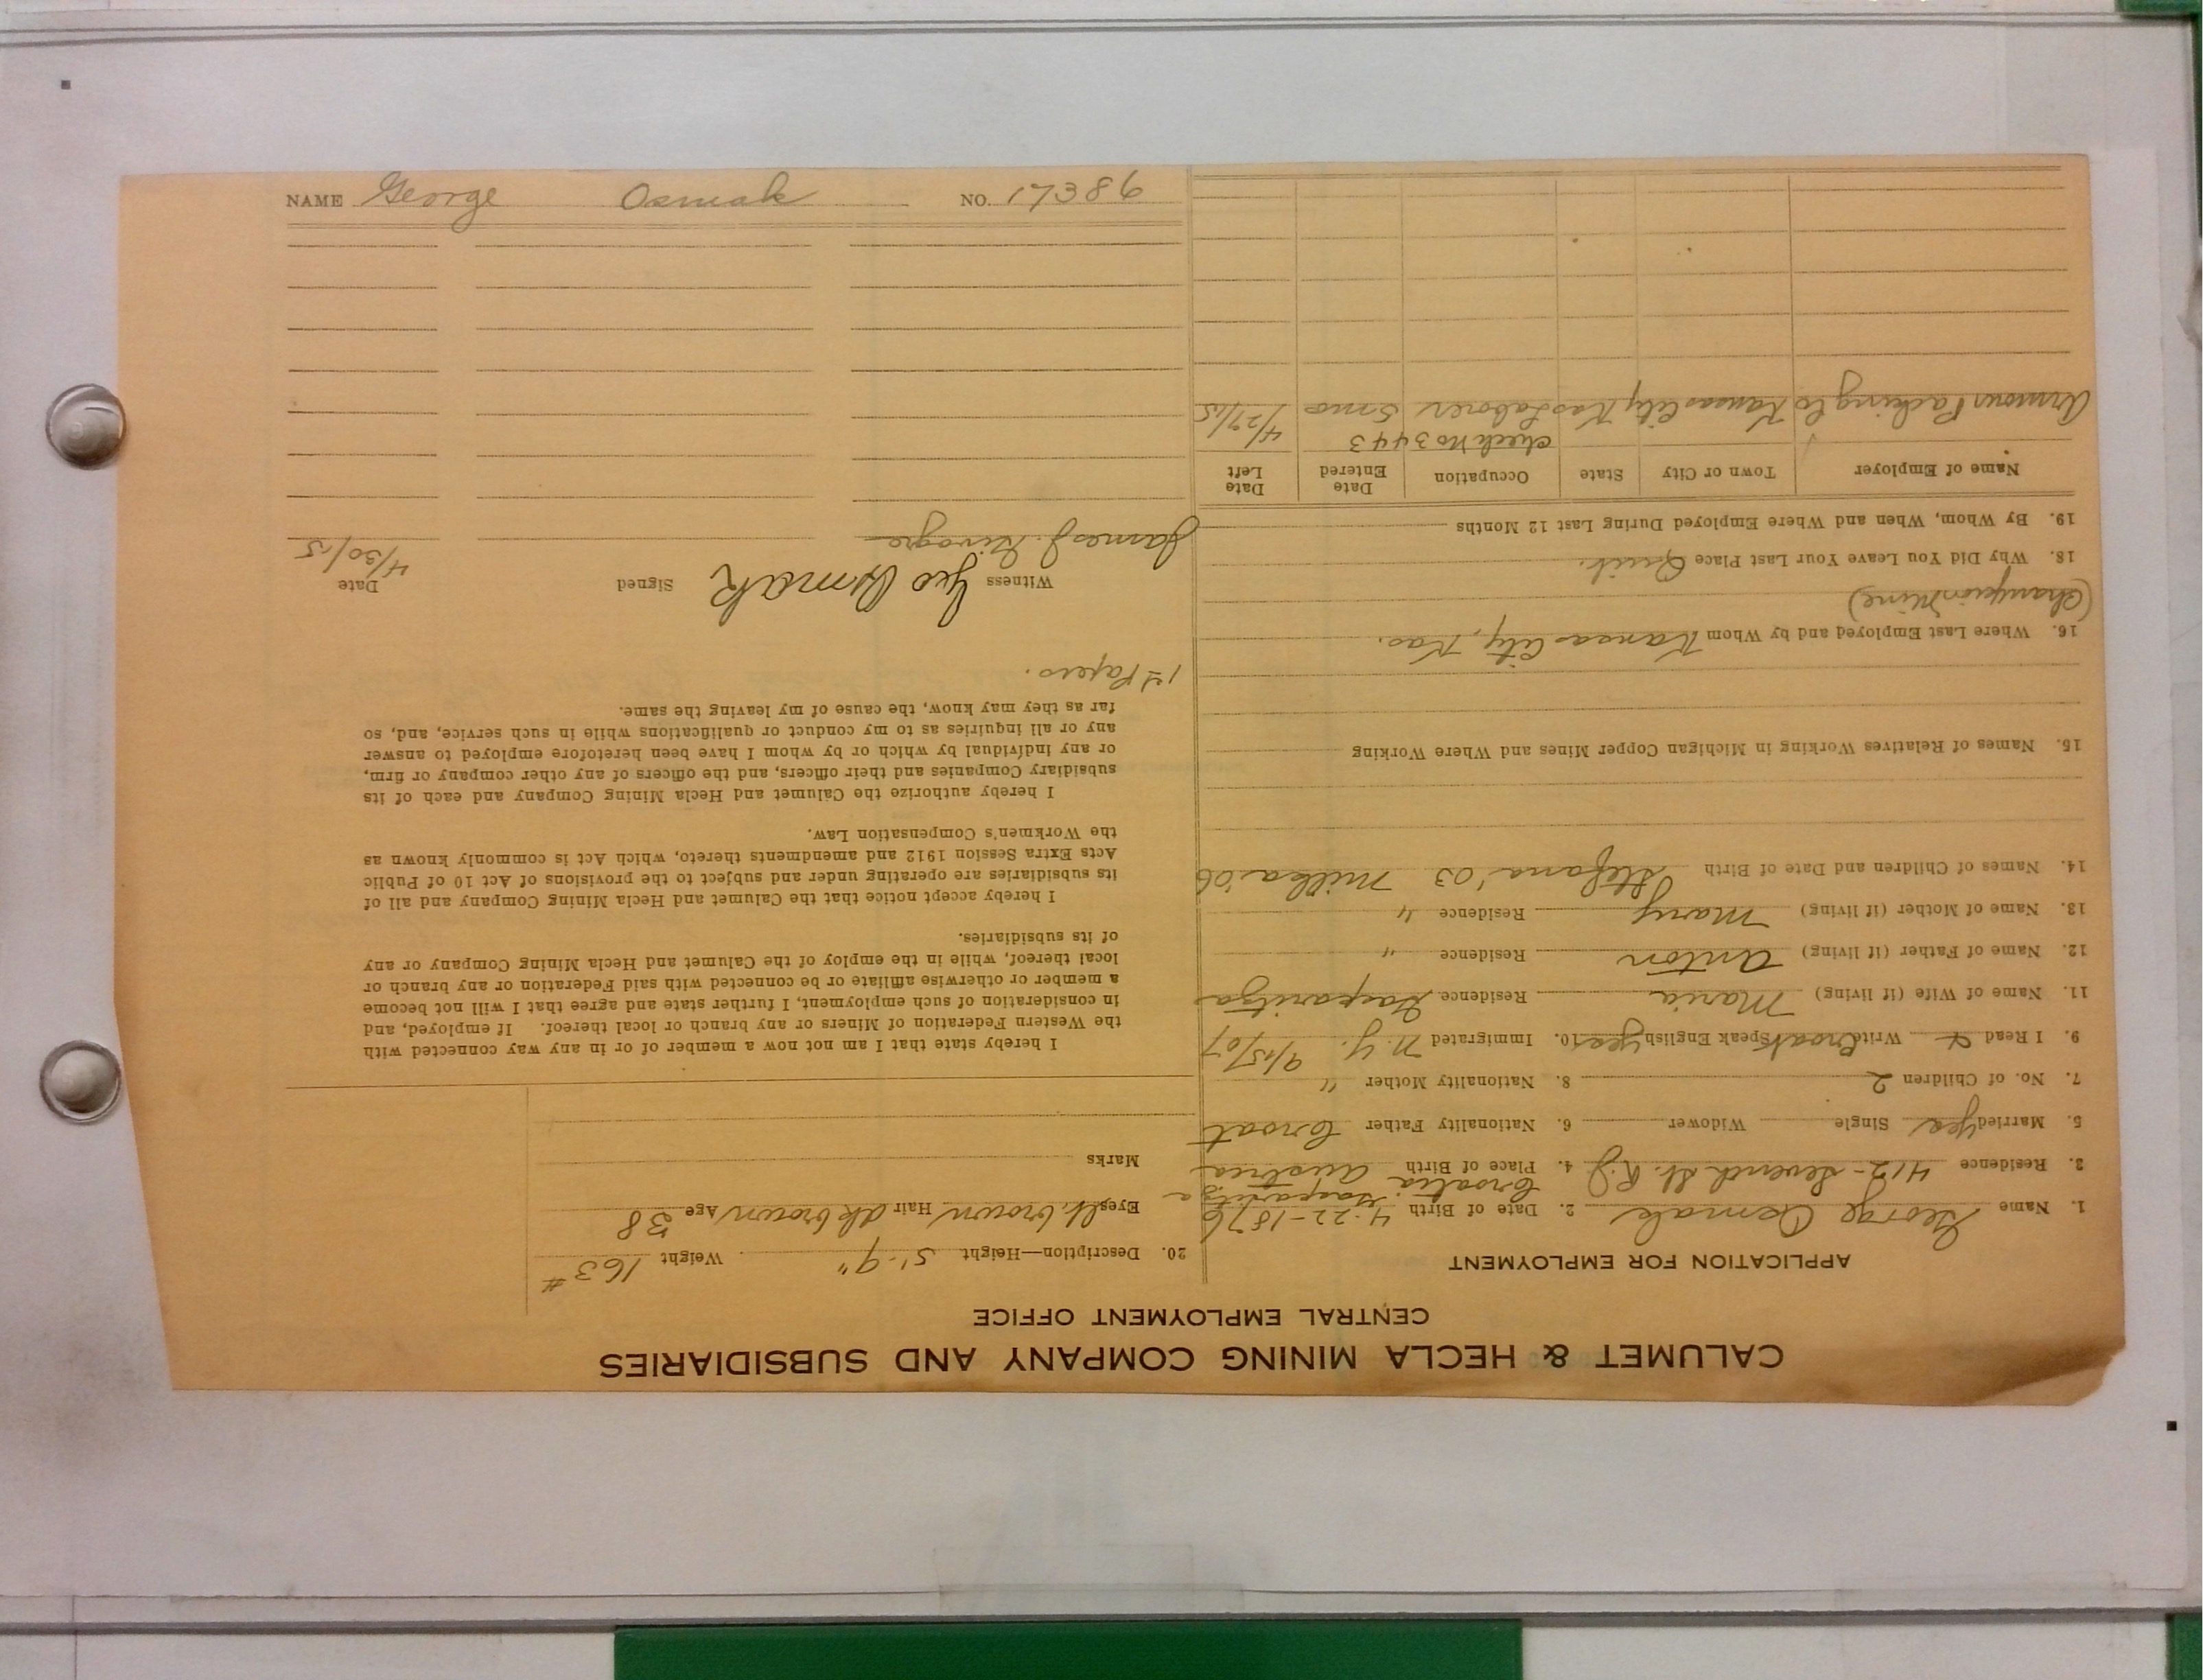 CALUMET & HECLA MINING COMPANY AND SUBSIDIARIES
CENTRAL EMPLOYMENT OFFICE
APPLICATION FOR EMPLOYMENT
1. Name George Osmak 2. Date of Birth 4-22-1876
3. Residence 412 - Seventh St. R.J. 4. Place of Birth Croatia Austria
5. Married yes Single Widower 6. Nationality Father Croat
7. No. of Children 2 8. Nationality Mother "
9. I Read & Write Croat Speak English yes 10. Immigrated N.Y. 9/15/07
11. Name of Wife (if living) Maria Residence
12. Name of Father (if living) Anton Residence "
13. Name of Mother (if living) Mary Residence "
14. Names of Children and Date of Birth Stefana '03 Milka '06
15. Names of Relatives Working in Michigan Copper Mines and Where Working
16. Where Last Employed and by Whom Kansas City, Kas.
(Champion Mine)
18. Why Did You Leave Your Last Place Quit.
19. By Whom, When and Where Employed During Last 12 Months
Name of Employer Town or City State Occupation Date Entered Date Left
Check No 3443
Armour Packing Co Kansas City Kas Laborer 5 mos 4/27/15
20. Description—Height 5'-9" Weight 163#
Eyes lt. brown Hair dk brown Age 38
Marks
I hereby state that I am not now a member of or in any way connected with
the Western Federation of Miners or any branch or local thereof. If employed, and
in consideration of such employment, I further state and agree that I will not become
a member or otherwise affiliate or be connected with said Federation or any branch or
local thereof, while in the employ of the Calumet and Hecla Mining Company or any
of its subsidiaries.
I hereby accept notice that the Calumet and Hecla Mining Company and all of
its subsidiaries are operating under and subject to the provisions of Act 10 of Public
Acts Extra Session 1912 and amendments thereto, which Act is commonly known as
the Workmen's Compensation Law.
I hereby authorize the Calumet and Hecla Mining Company and each of its
subsidiary Companies and their officers, and the officers of any other company or firm,
or any individual by which or by whom I have been heretofore employed to answer
any or all inquiries as to my conduct or qualifications while in such service, and, so
far as they may know, the cause of my leaving the same.
1st Papers.
Witness Geo Osmak Signed Date
James J. 4/30/15
NAME George Osmak NO. 17386